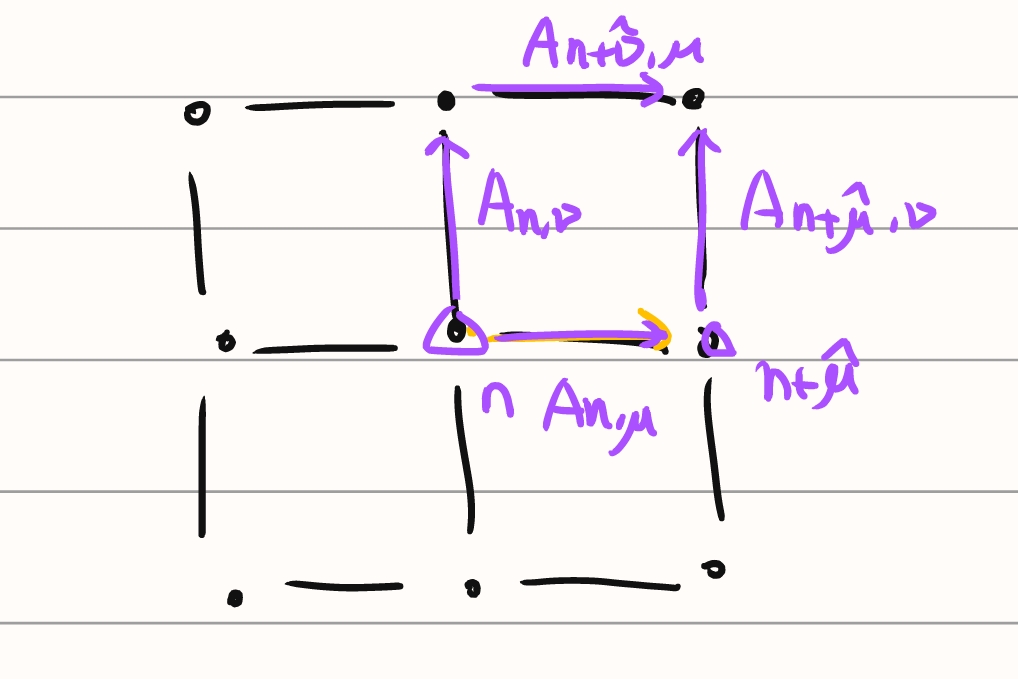 An+ν̂,μ
An,ν
An+μ̂,ν
n
An,μ
n+μ̂